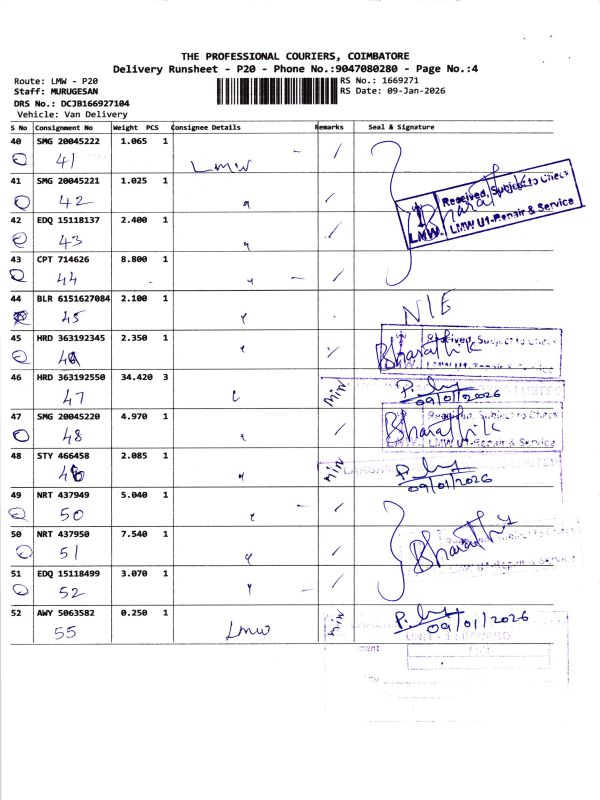 THE PROFESSIONAL COURIERS, COIMBATORE
Delivery Runsheet - P20 - Phone No.:9047080280 - Page No.:4
Route: LMW - P20
RS No.: 1669271
Staff: MURUGESAN
RS Date: 09-Jan-2026
DRS No.: DCJB166927104
Vehicle: Van Delivery
S No Consignment No Weight PCS Consignee Details Remarks Seal & Signature
40 SMG 20045222 1.065 1
41 LMW
41 SMG 20045221 1.025 1
42
Received, Subject to Check
Bharathi
LMW LMW U1-Repair & Service
42 EDQ 15118137 2.400 1
43
43 CPT 714626 8.800 1
44
44 BLR 6151627084 2.100 1
45
45 HRD 363192345 2.350 1
Received, Subject to Check
Bharathik
LMW U1-Repair & Service
46 HRD 363192550 34.420 3
47
09/01/2026
47 SMG 20045220 4.970 1
48
Received, Subject to Check
Bharathik
LMW U1-Repair & Service
48 STY 466458 2.085 1
09/01/2026
49 NRT 437949 5.040 1
50
50 NRT 437950 7.540 1
51
Bharathi
51 EDQ 15118499 3.070 1
52
52 AWY 5063582 0.250 1
55 LMW
09/01/2026